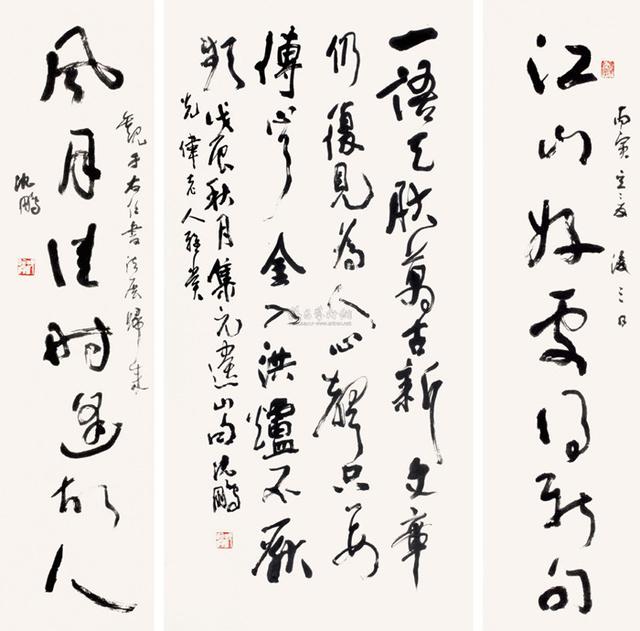 丙寅立夏後三日
江山好處得新句
一語天然萬古新文章
仍復見為人心聲只要
傳心了金入洪爐不厭
頻戊辰秋月集元遺山句沈鵬
觀于右任書法展歸來
风月佳時逢故人
沈鵬